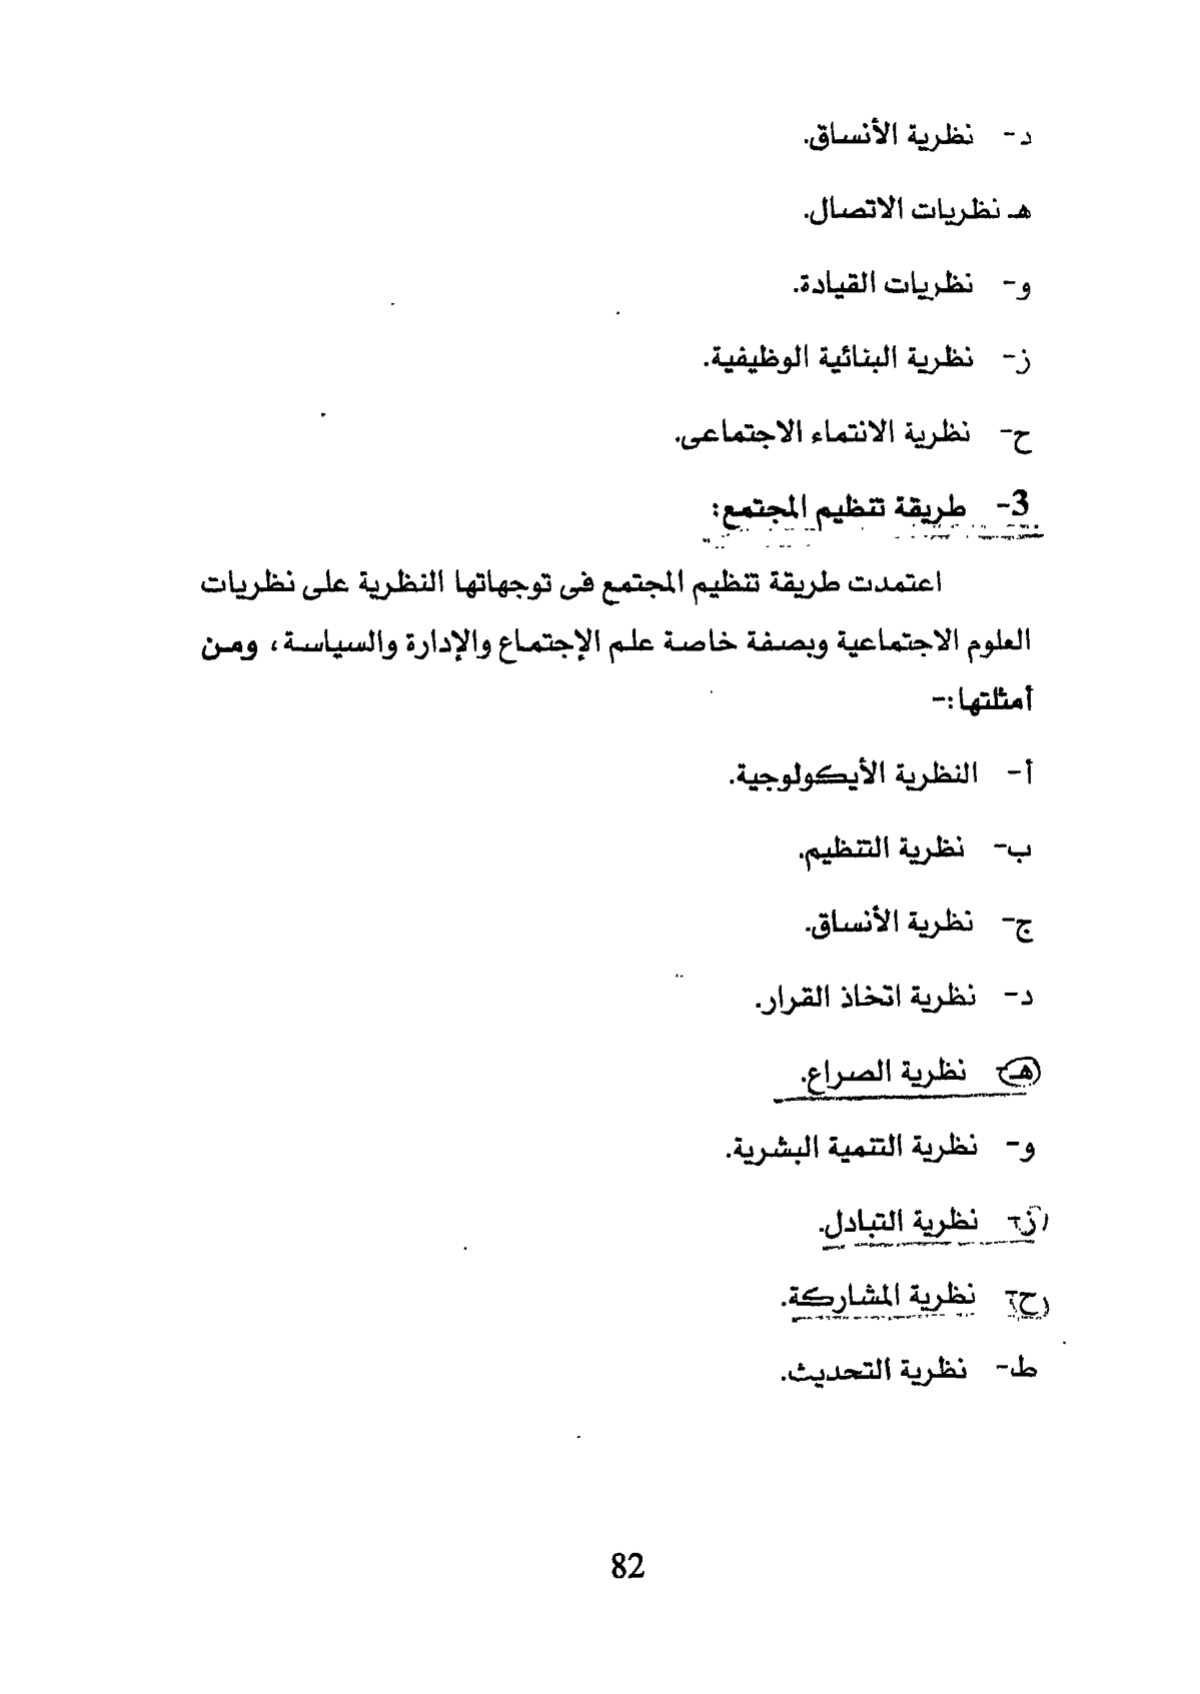 د- نظرية الأنساق.
هـ نظريات الاتصال.
و- نظريات القيادة.
ز- نظرية البنائية الوظيفية.
ح- نظرية الانتماء الاجتماعى.
3- طريقة تنظيم المجتمع:
اعتمدت طريقة تنظيم المجتمع فى توجهاتها النظرية على نظريات
العلوم الاجتماعية وبصفة خاصة علم الإجتماع والإدارة والسياسة، ومن
أمثلتها:-
أ- النظرية الأيكولوجية.
ب- نظرية التنظيم.
ج- نظرية الأنساق.
د- نظرية اتخاذ القرار.
هـ- نظرية الصراع.
و- نظرية التنمية البشرية.
ز- نظرية التبادل.
ح- نظرية المشاركة.
ط- نظرية التحديث.
82